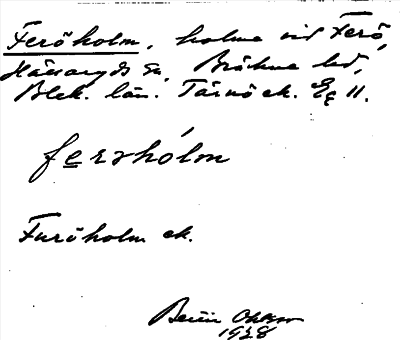 Feröholm, holme vid Ferö,
Hällaryds sn, Bräkne hd,
Blek. län. Tärnö ek. Eg 11.
fervhólm
Furöholm ek.
1928